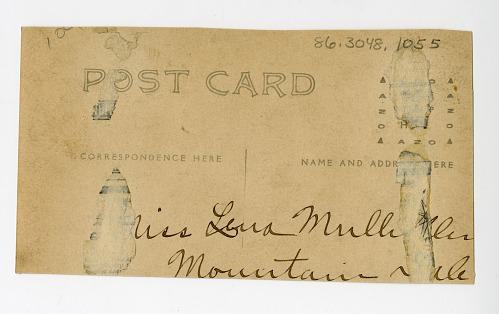 86.3048.1055
POST CARD
AZO
CORRESPONDENCE HERE
NAME AND ADDR ERE
Miss Lena
Mountain